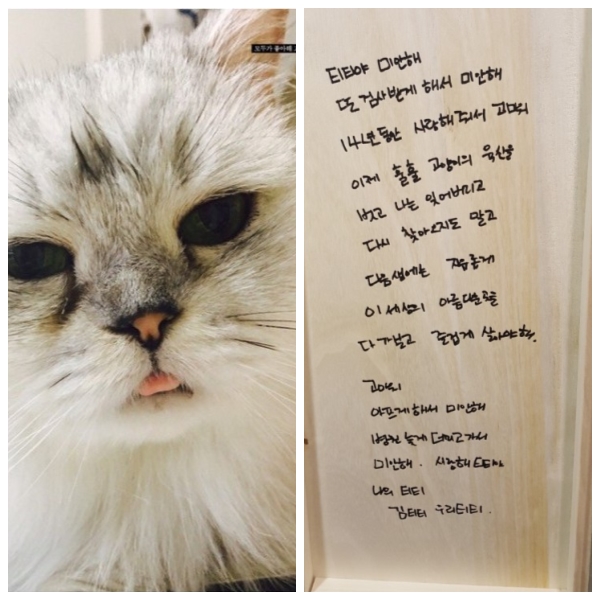 모두가 좋아해
티티야 미안해
또 검사받게 해서 미안해
14년동안 사랑해줘서 고마워
이제 훌훌 고양이의 육신을
벗고 나는 잊어버리고
다시 찾아오지도 말고
다음생에는 자유롭게
이 세상의 아름다운곳을
다 가보고 즐겁게 살아야해.
고마워
아프게해서 미안해
병원 늦게 데리고가서
미안해. 사랑해 티티야
나의 티티
김티티 우리티티.